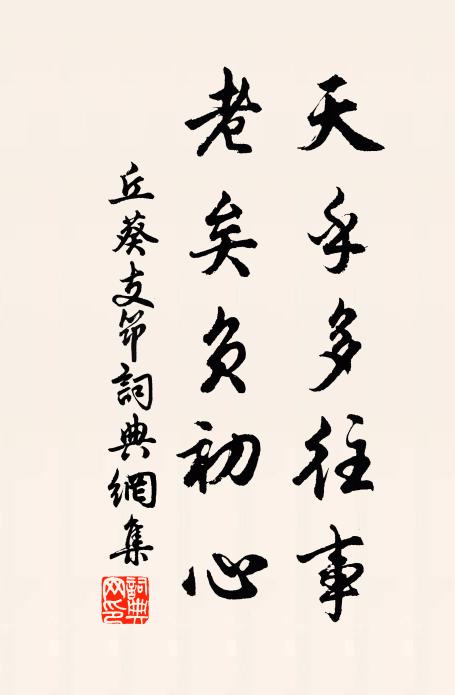 天乎多往事
老矣負初心
丘葵支節詞典網集
詞典网印